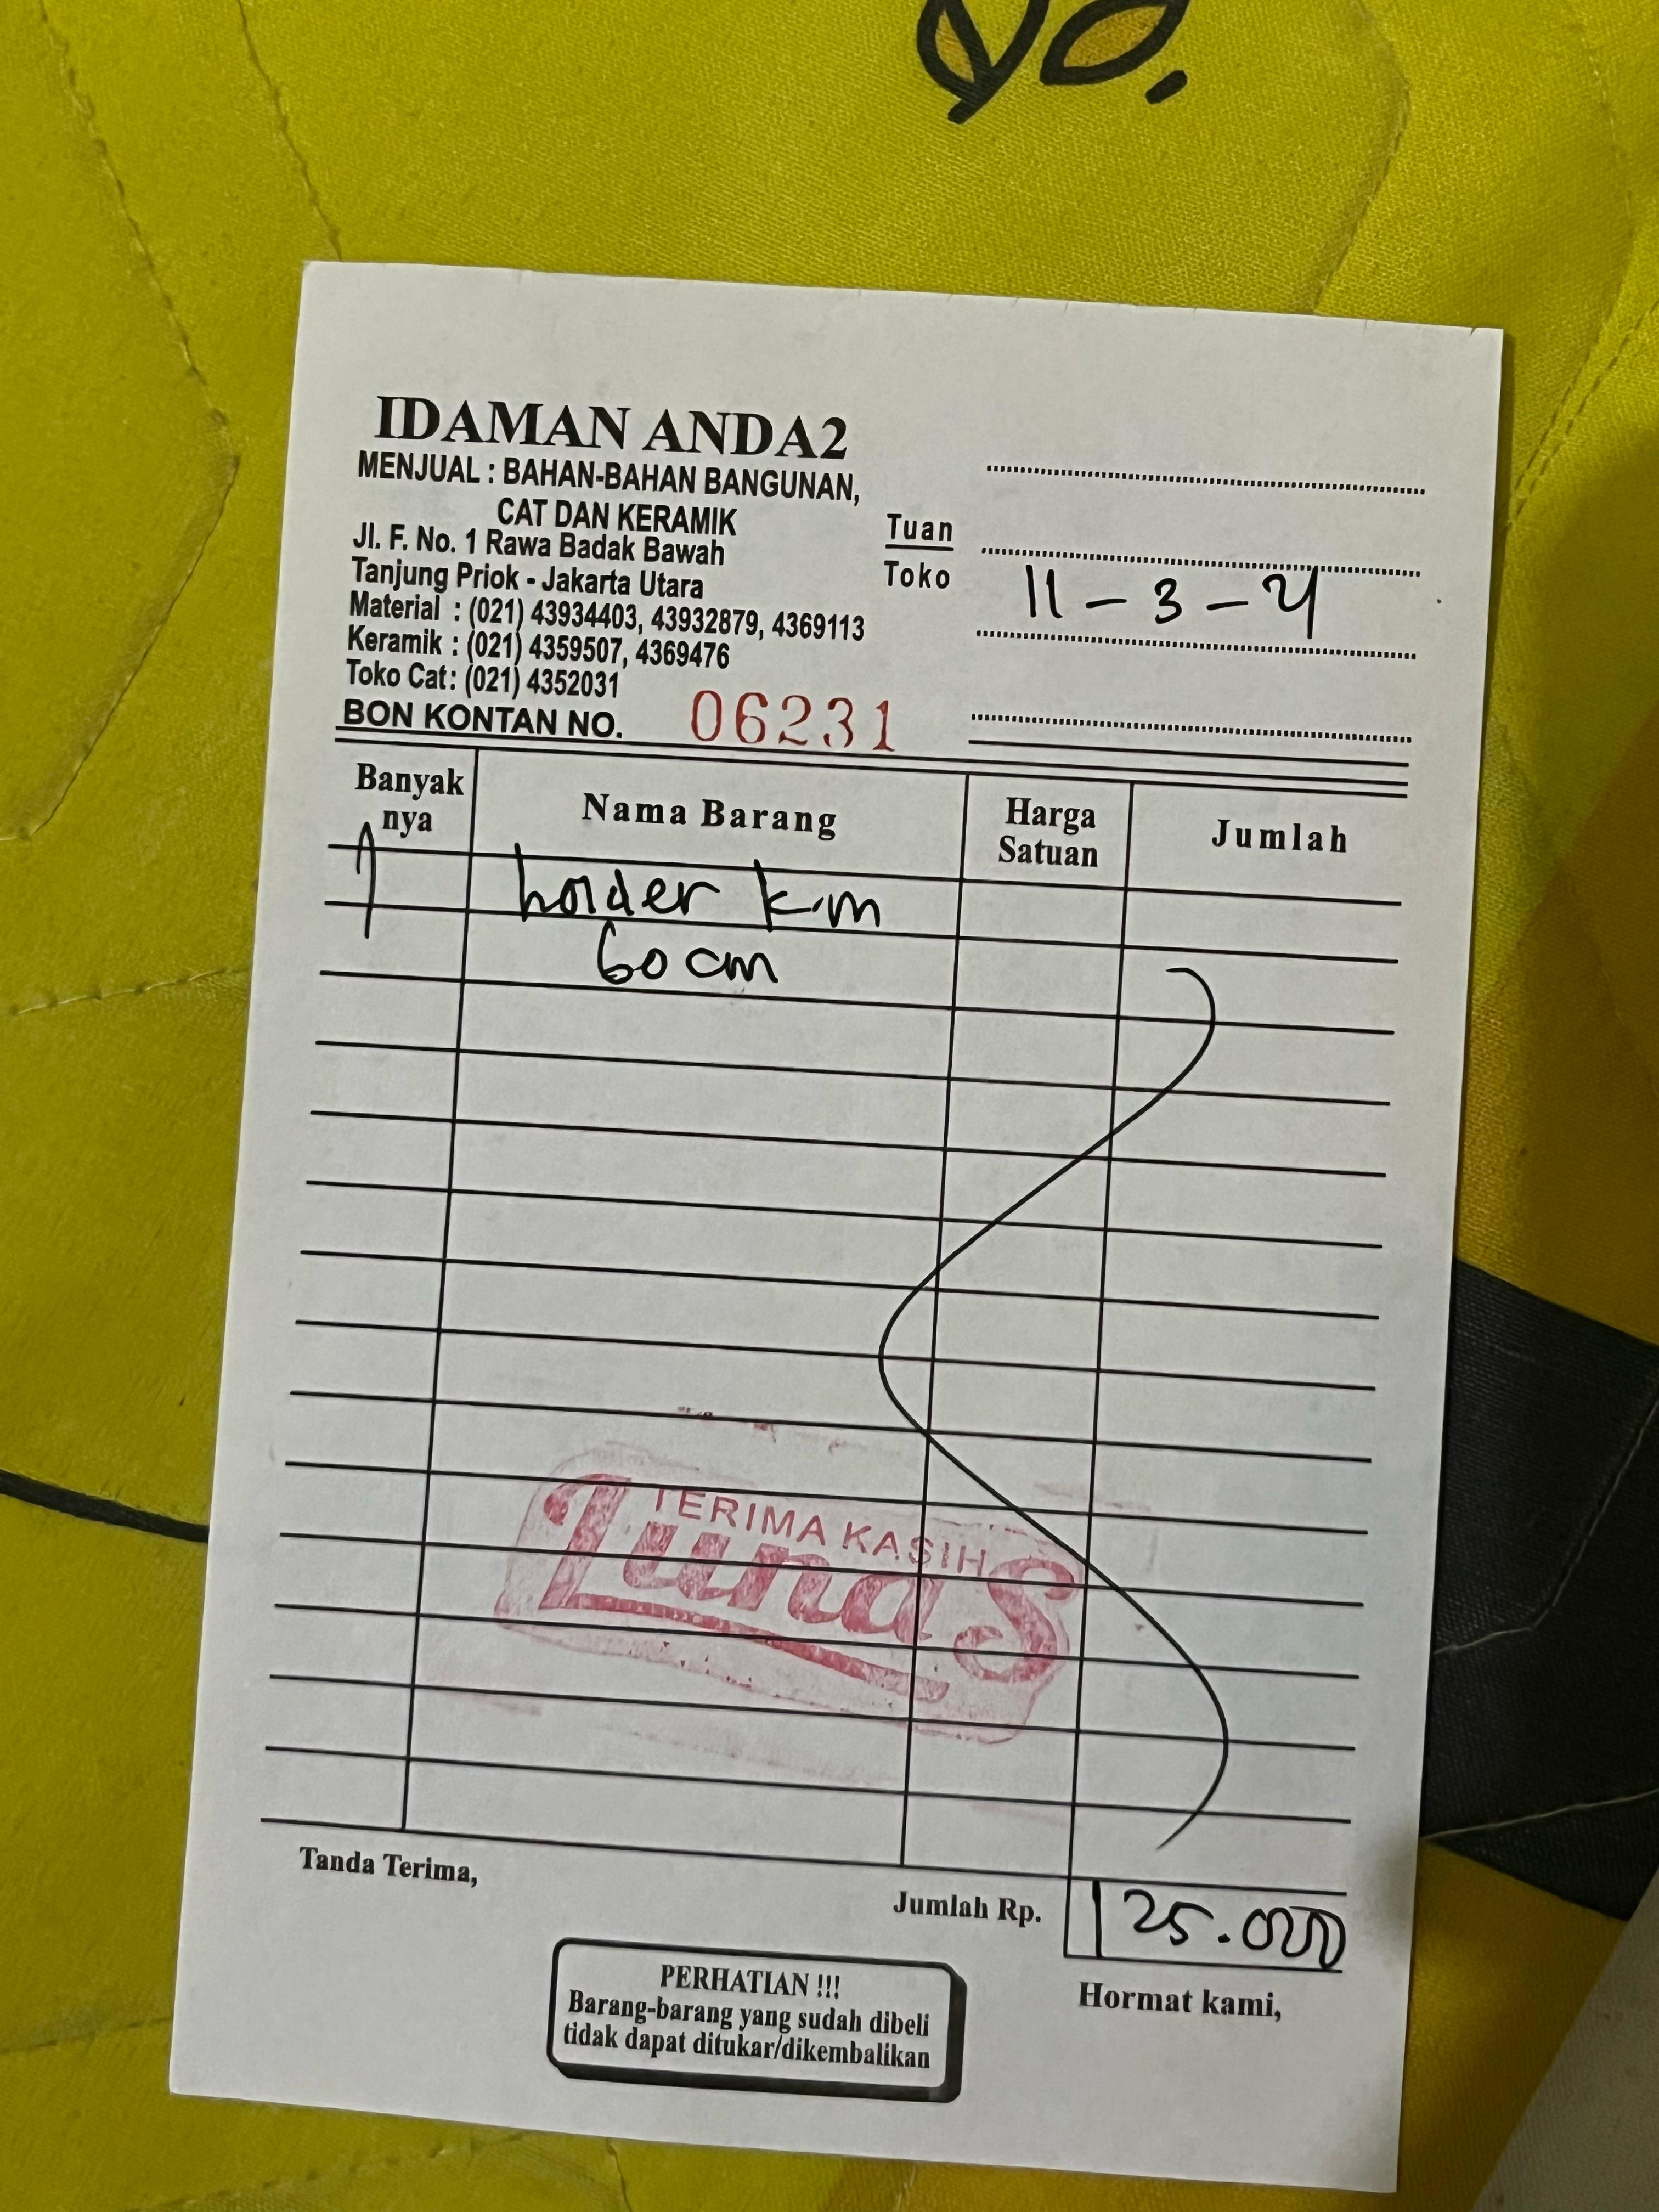 IDAMAN ANDA2
MENJUAL : BAHAN-BAHAN BANGUNAN,
CAT DAN KERAMIK
Jl. F. No. 1 Rawa Badak Bawah
Tanjung Priok - Jakarta Utara
Material : (021) 43934403, 43932879, 4369113
Keramik : (021) 4359507, 4369476
Toko Cat : (021) 4352031
BON KONTAN NO. 06231
Tuan
Toko
11 - 3 -
Banyak nya
Nama Barang
Harga Satuan
Jumlah
1 holder k.m
60 cm
TERIMA KASIH
LunaS
Tanda Terima,
Jumlah Rp. 125.000
Hormat kami,
PERHATIAN !!!
Barang-barang yang sudah dibeli
tidak dapat ditukar/dikembalikan